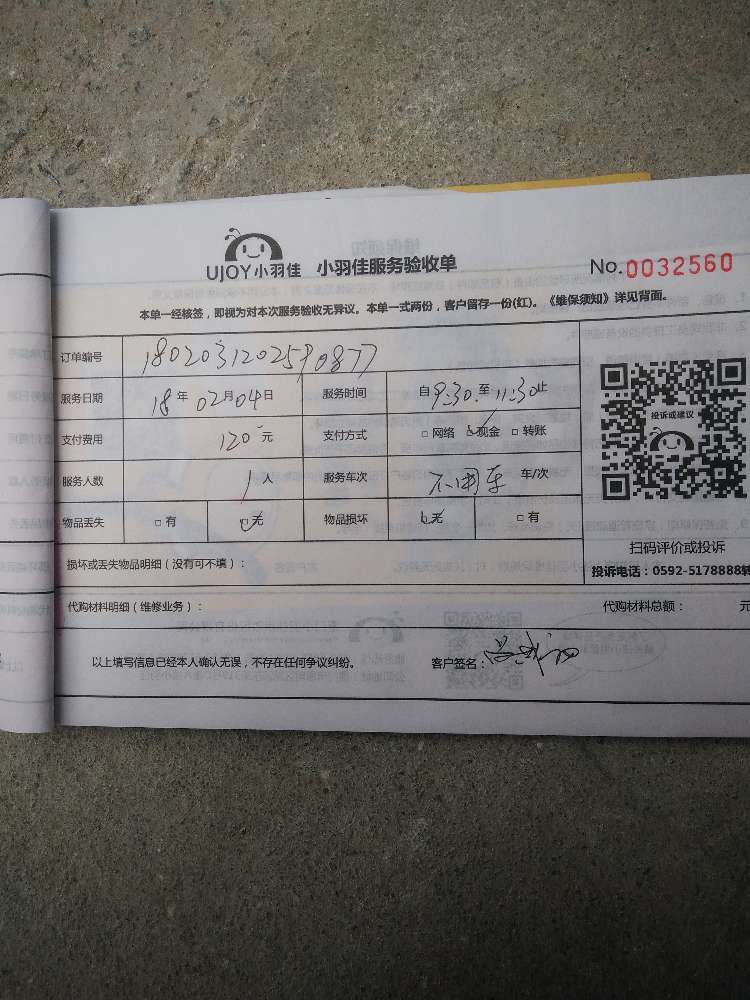 UJOY小羽佳 小羽佳服务验收单 No.0032560
本单一经核签，即视为对本次服务验收无异议。本单一式两份，客户留存一份(红)。《维保须知》详见背面。
订单编号 1802031202590877
服务日期 18年02月04日 服务时间 自9:30至11:30止
支付费用 120元 支付方式 □网络 □现金 □转账
服务人数 1人 服务车次 不用车 车/次
物品丢失 □有 □无 物品损坏 □无 □有
投诉或建议
扫码评价或投诉
损坏或丢失物品明细（没有可不填）：
投诉电话：0592-5178888转
代购材料明细（维修业务）： 代购材料总额： 元
以上填写信息已经本人确认无误，不存在任何争议纠纷。 客户签名：